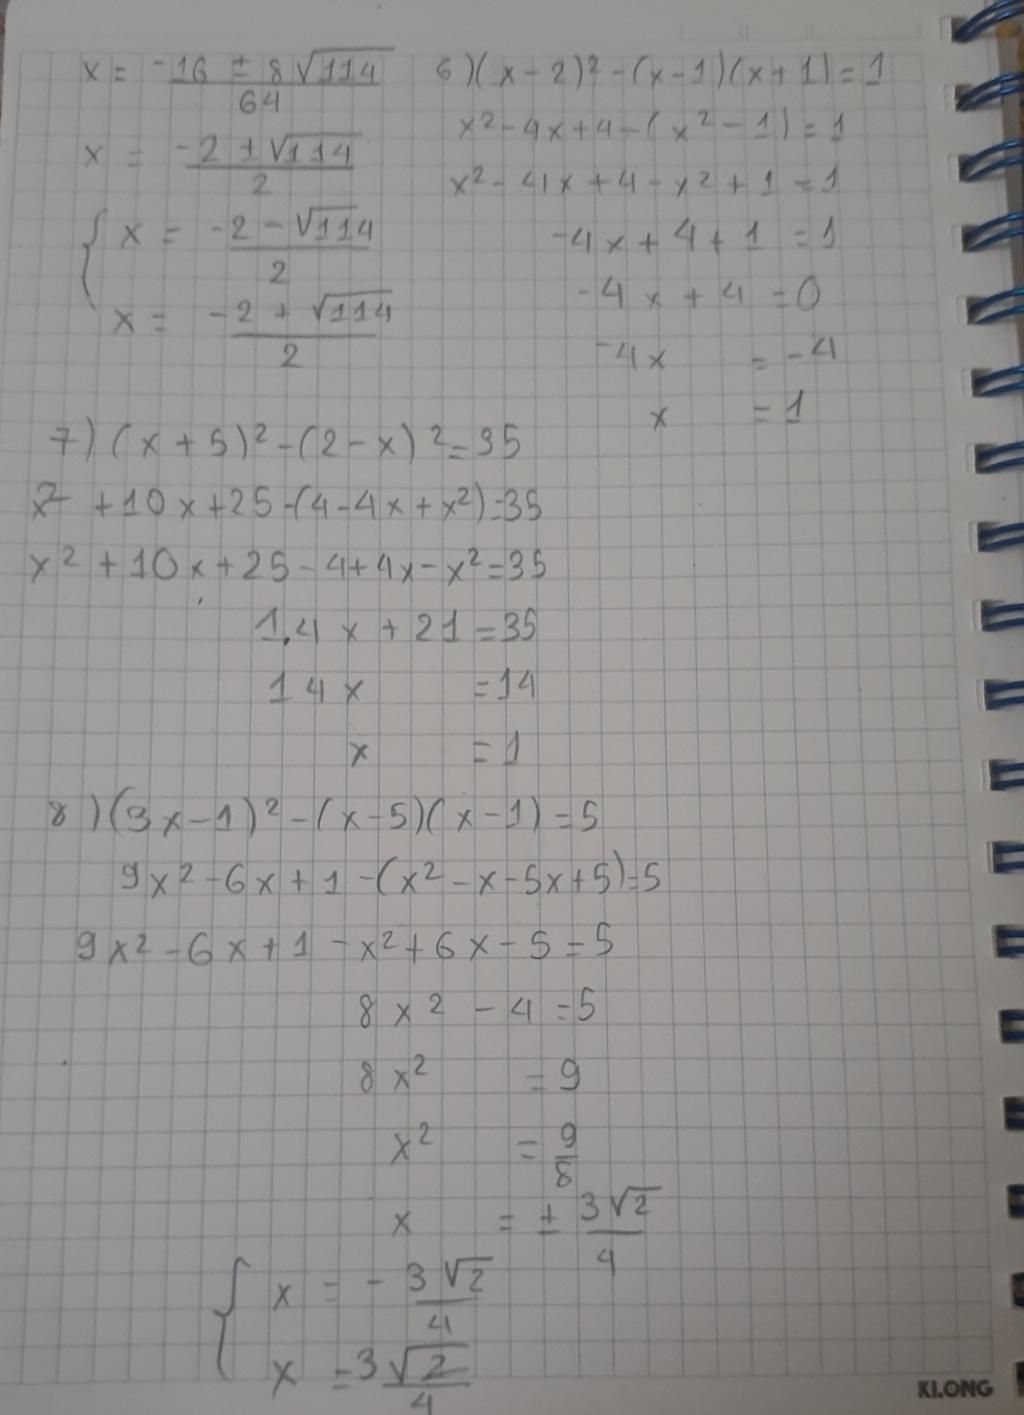 x = -16 ± 8√114 / 64
x = -2 ± √114 / 2
{ x = -2 - √114 / 2
x = -2 + √114 / 2
6) (x - 2)² - (x-1)(x+1) = 1
x² - 4x + 4 - (x² - 1) = 1
x² - 4x + 4 - x² + 1 = 1
-4x + 4 + 1 = 1
-4x + 4 = 0
-4x = -4
x = 1
7) (x + 5)² - (2 - x)² = 35
x² + 10x + 25 - (4 - 4x + x²) = 35
x² + 10x + 25 - 4 + 4x - x² = 35
14x + 21 = 35
14x = 14
x = 1
8) (3x - 1)² - (x - 5)(x - 1) = 5
9x² - 6x + 1 - (x² - x - 5x + 5) = 5
9x² - 6x + 1 - x² + 6x - 5 = 5
8x² - 4 = 5
8x² = 9
x² = 9/8
x = ± 3√2 / 4
{ x = - 3√2 / 4
x = 3√2 / 4
KLONG